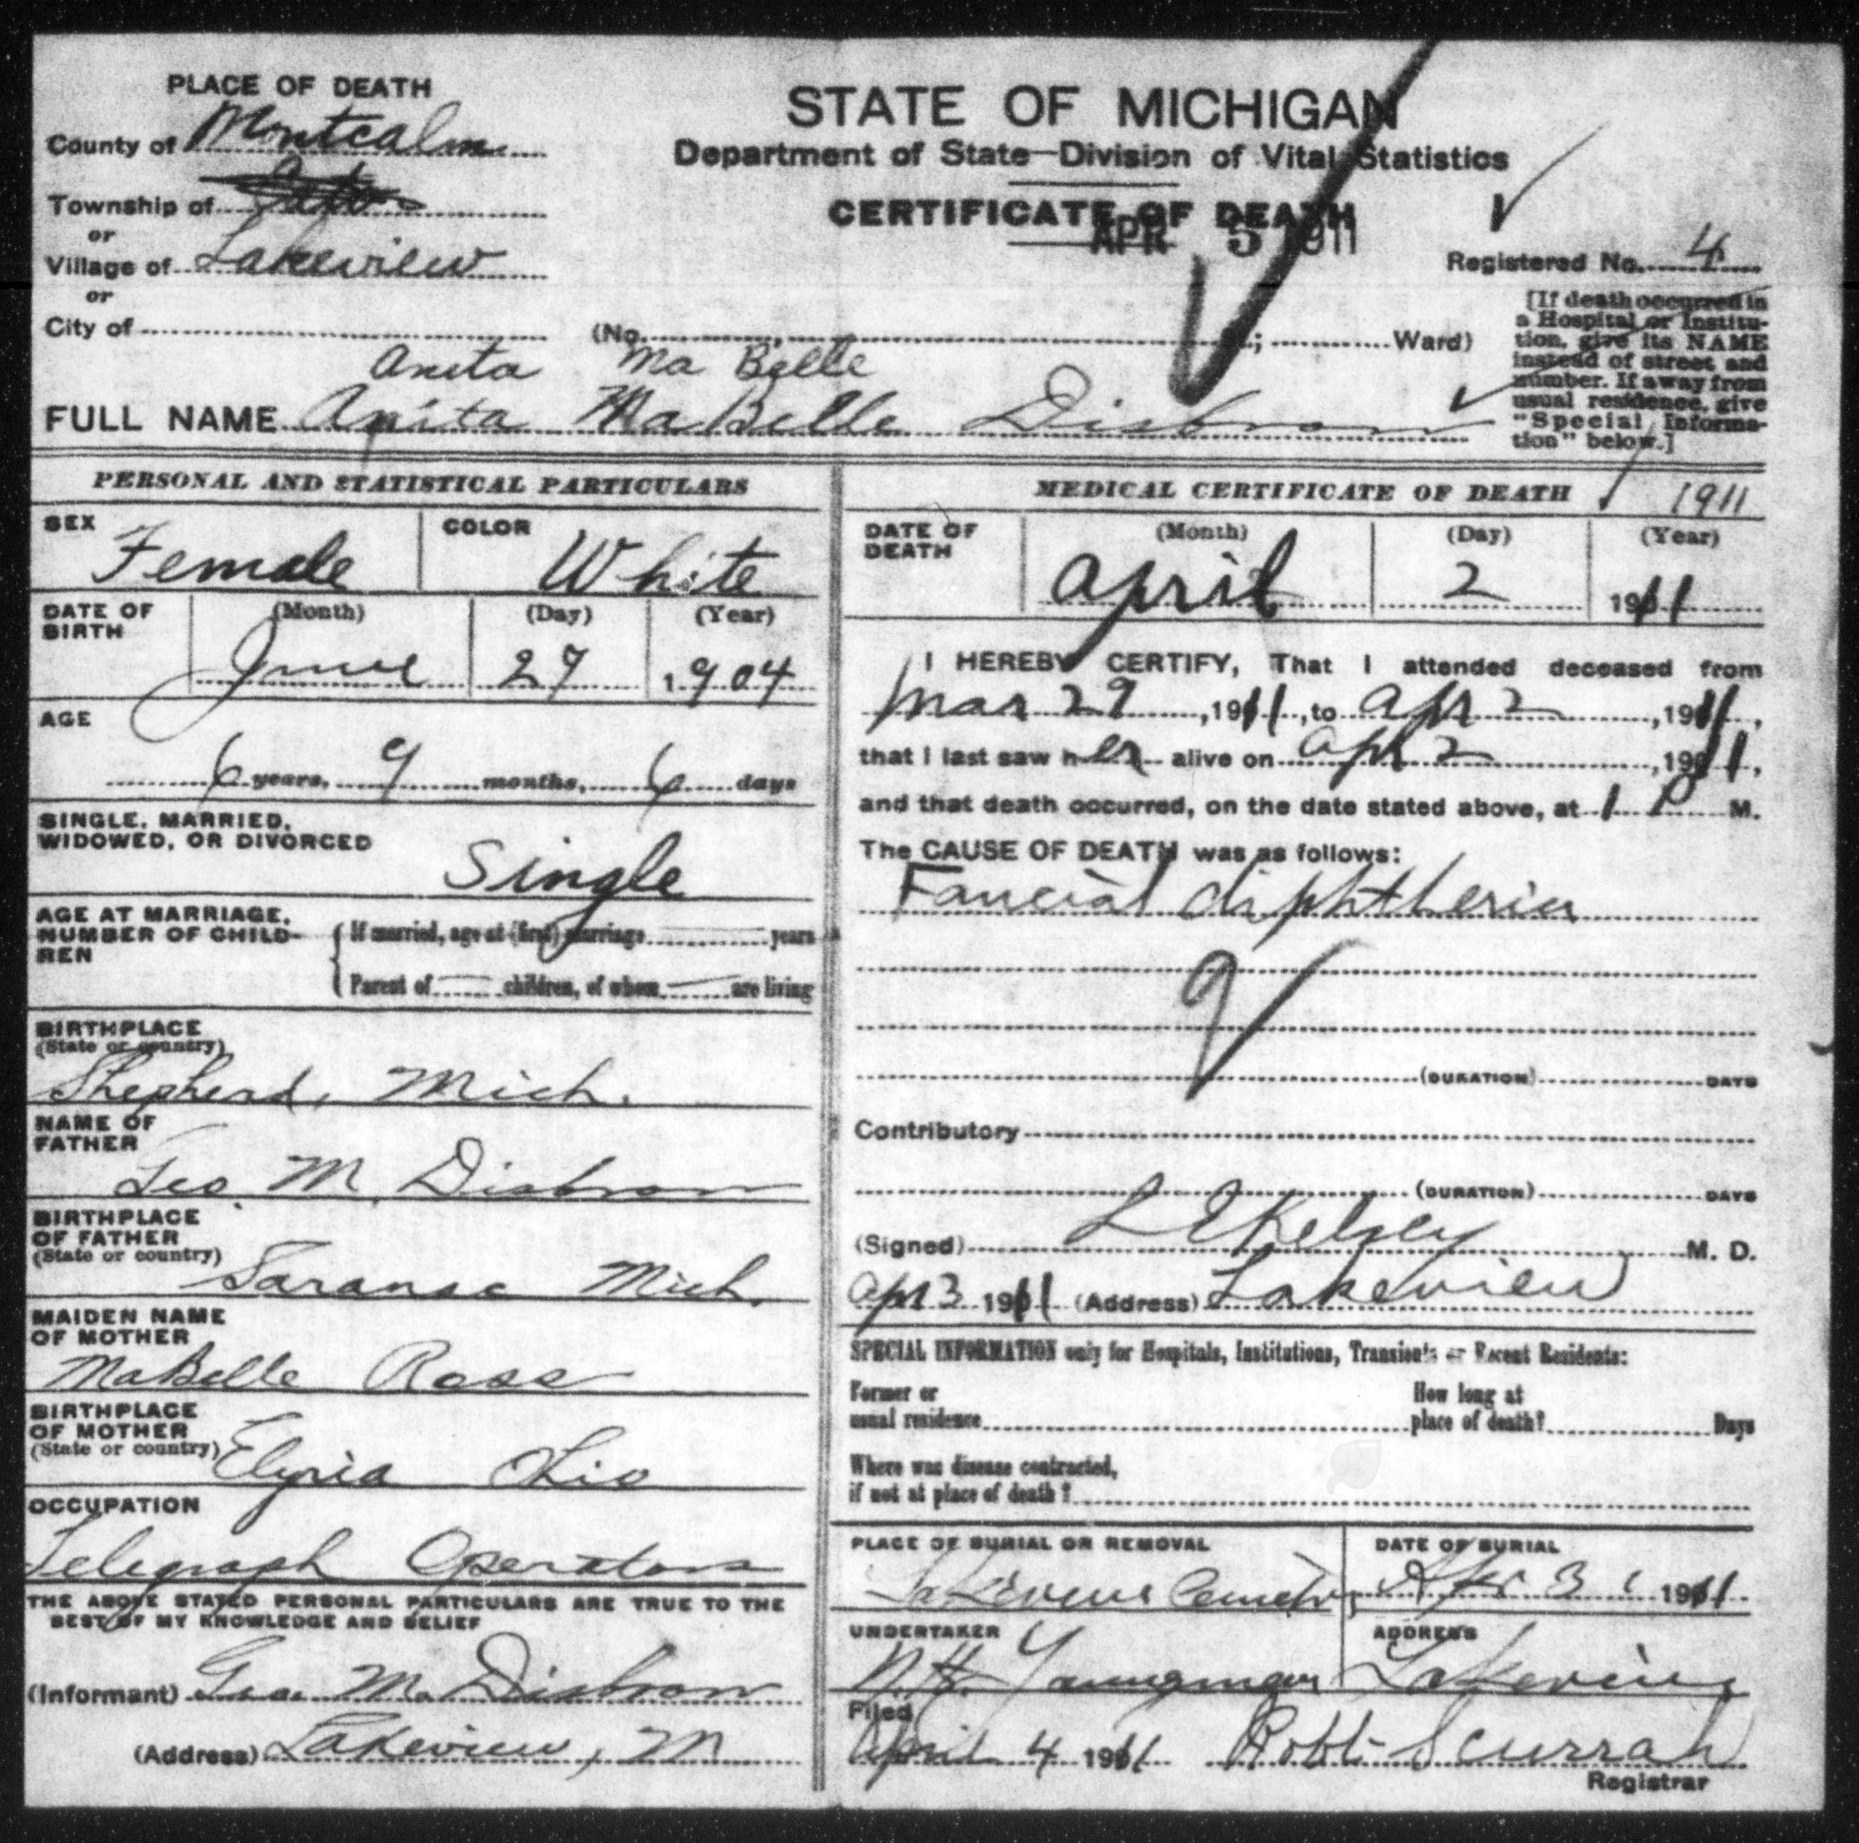 PLACE OF DEATH
County of Montcalm
Township of Cato
or
Village of Lakeview
or
City of
STATE OF MICHIGAN
Department of State—Division of Vital Statistics
CERTIFICATE OF DEATH
APR 5 1911
Registered No. 4
(No. ; Ward)
[If death occurred in
a Hospital or Institu-
tion, give its NAME
instead of street and
number. If away from
usual residence, give
"Special Informa-
tion" below.]
Anita Ma Belle
FULL NAME Anita MaBelle Disbrow
PERSONAL AND STATISTICAL PARTICULARS
SEX Female
COLOR White
DATE OF BIRTH
(Month) (Day) (Year)
June 27 1904
AGE
6 years, 9 months, 6 days
SINGLE, MARRIED,
WIDOWED, OR DIVORCED
Single
AGE AT MARRIAGE,
NUMBER OF CHILD-
REN
If married, age at (first) marriage years
Parent of children, of whom are living
BIRTHPLACE
(State or country)
Shepherd, Mich.
NAME OF
FATHER
Geo. M. Disbrow
BIRTHPLACE
OF FATHER
(State or country)
Saranac Mich.
MAIDEN NAME
OF MOTHER
MaBelle Ross
BIRTHPLACE
OF MOTHER
(State or country)
Elyria Ohio
OCCUPATION
Telegraph Operators
THE ABOVE STATED PERSONAL PARTICULARS ARE TRUE TO THE
BEST OF MY KNOWLEDGE AND BELIEF
(Informant) Geo. M. Disbrow
(Address) Lakeview, M
MEDICAL CERTIFICATE OF DEATH
1911
DATE OF
DEATH
(Month) (Day) (Year)
April 2 1911
I HEREBY CERTIFY, That I attended deceased from
Mar 29, 1911, to Apr 2, 1911,
that I last saw her alive on Apr 2, 1911,
and that death occurred, on the date stated above, at 1 P M.
The CAUSE OF DEATH was as follows:
Faucial diphtheria
9
(DURATION) DAYS
Contributory
(DURATION) DAYS
(Signed) L E Kelsey M. D.
Apr 3 1911 (Address) Lakeview
SPECIAL INFORMATION only for Hospitals, Institutions, Transients or Recent Residents:
Former or
usual residence
How long at
place of death? Days
Where was disease contracted,
if not at place of death?
PLACE OF BURIAL OR REMOVAL
Lakeview Cemetery
DATE OF BURIAL
Apr 3 1911
UNDERTAKER
N. H. Youngman
ADDRESS
Lakeview
Filed
April 4 1911 Robt Scurrah
Registrar